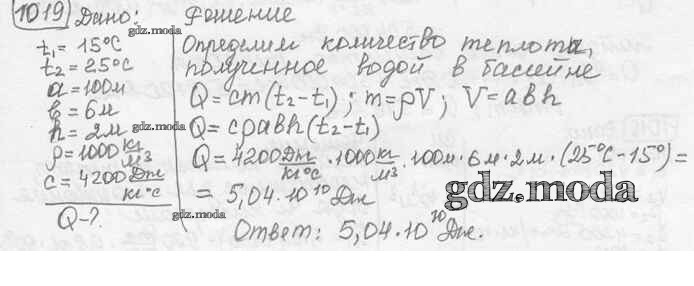 1019 Дано:
t₁ = 15°C
t₂ = 25°C
a = 100м
b = 6м
h = 2м
ρ = 1000 кг/м3
c = 4200 Дж/кг°C
Q - ?
Решение
Определим количество теплоты,
полученное водой в бассейне
Q = cm(t₂ - t₁); m = ρV; V = abh
Q = cρabh(t₂ - t₁)
Q = 4200 Дж/кг°C · 1000 кг/м3 · 100м · 6м · 2м · (25°C - 15°) =
= 5,04 · 10¹⁰ Дж
Ответ: 5,04 · 10¹⁰ Дж.
gdz.moda
gdz.moda
gdz.moda
gdz.moda
gdz.moda